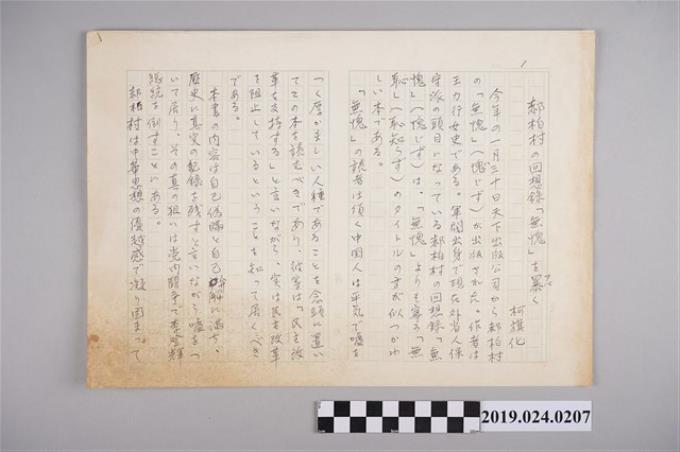 1
郝柏村の回想録「無愧」を暴く
柯旗化
今年の一月三十日天下出版公司から郝柏村
の「無愧」(愧じず)が出版された。作者は
王力行女史である。軍閥出身で現在外省人保
守派の頭目になっている郝柏村の回想録「無
愧」(愧じず)は、「無愧」よりも寧ろ「無
恥」(恥知らず)のタイトルの方が似つかわ
しい本である。
「無愧」の読者は須く中国人は平気で嘘を
つく厚かましい人種であることを念頭に置い
てこの本を読むべきであり、彼等は「民主改
革を支持する」と言いながら、実は民主改革
を阻止しているということを知って置くべき
である。
本書の内容は自己偽瞞と自己弁解に満ち、
歴史に真実の記録を残すと言いながら嘘をつ
いて居り、その真の狙いは党内闘争で李登輝
総統を倒すことにある。
郝柏村は中華思想の優越感で凝り固まって
2019.024.0207